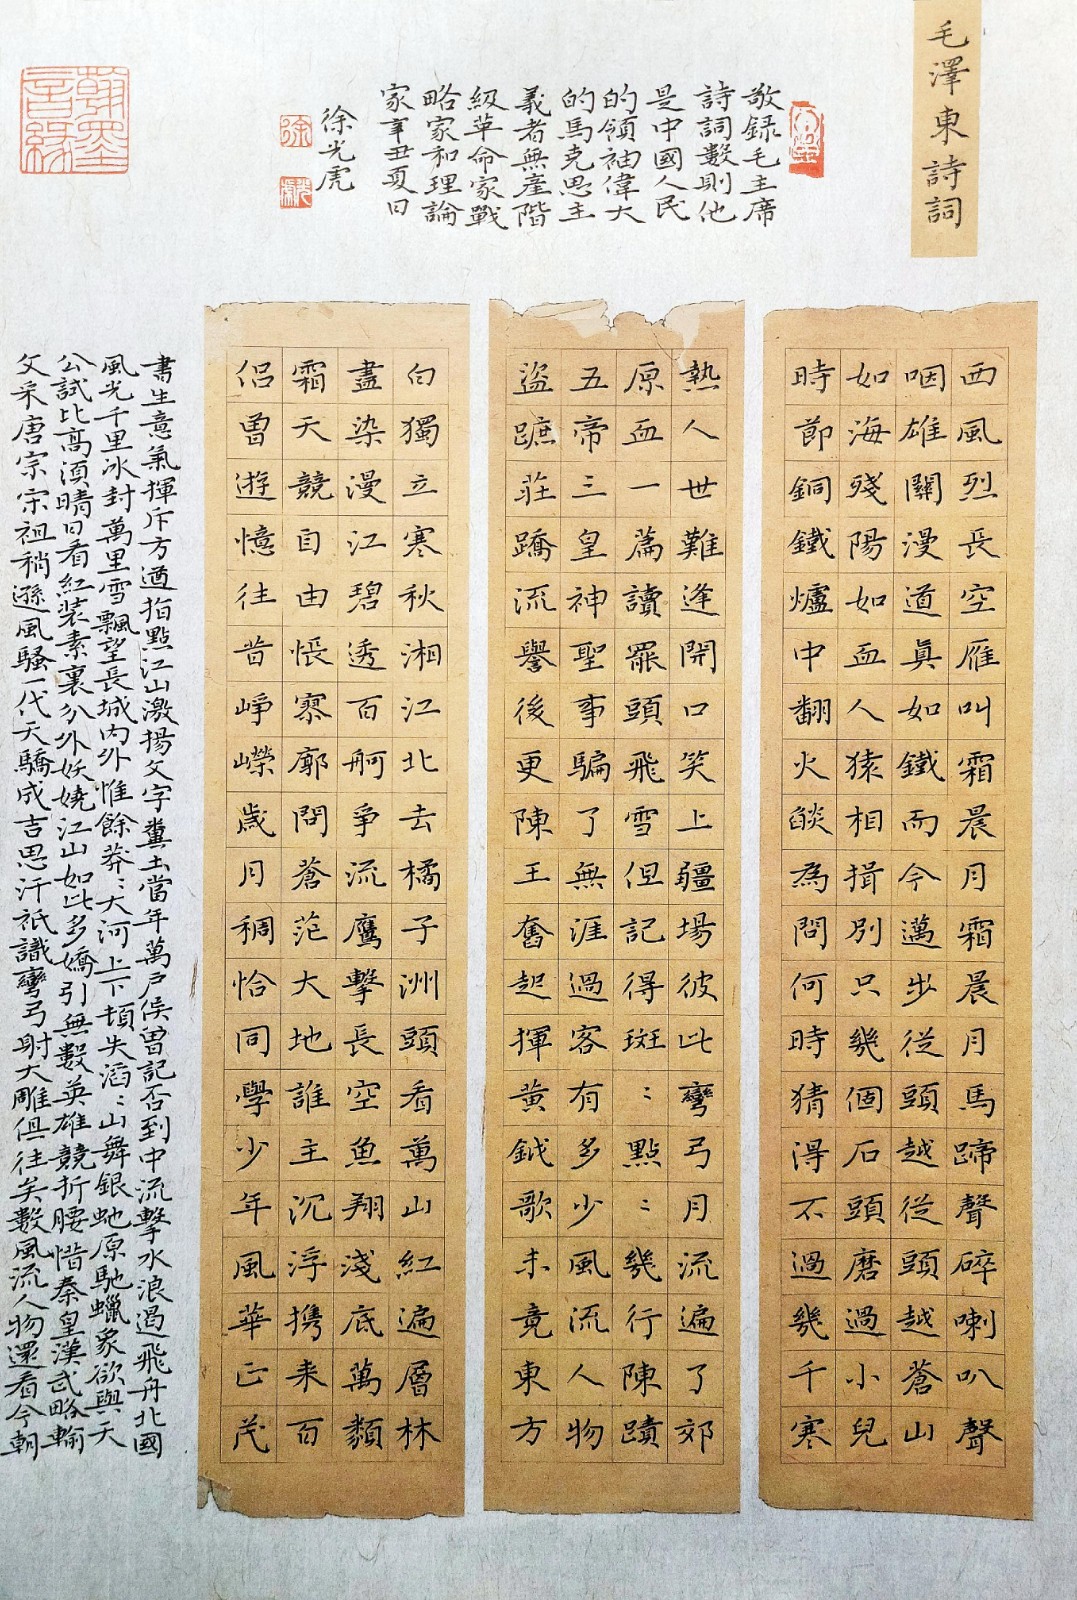 毛澤東詩詞
敬録毛主席
詩詞數則他
是中國人民
的領袖偉大
的馬克思主
義者無產階
級革命家戰
略家和理論
家辛丑夏日
徐光虎
徐
西風烈長空雁叫霜晨月霜晨月馬蹄聲碎喇叭聲
咽雄關漫道真如鐵而今邁步從頭越從頭越蒼山
如海殘陽如血人猿相揖別只幾個石頭磨過小兒
時節銅鐵爐中翻火燄為問何時猜得不過幾千寒
熱人世難逢開口笑上疆場彼此彎弓月流遍了郊
原血一篇讀罷頭飛雪但記得斑〻點〻幾行陳蹟
五帝三皇神聖事騙了無涯過客有多少風流人物
盜蹠莊蹻流譽後更陳王奮起揮黃鉞歌未竟東方
白獨立寒秋湘江北去橘子洲頭看萬山紅遍層林
盡染漫江碧透百舸爭流鷹擊長空魚翔淺底萬類
霜天競自由悵寥廓問蒼茫大地誰主沉浮携来百
侶曾遊憶往昔崢嶸歲月稠恰同學少年風華正茂
書生意氣揮斥方遒指點江山激揚文字糞土當年萬户侯曾記否到中流擊水浪遏飛舟北國
風光千里冰封萬里雪飄望長城内外惟餘莽〻大河上下頓失滔〻山舞銀虵原馳蠟象欲與天
公試比高須晴日看紅裝素裹分外妖嬈江山如此多嬌引無數英雄競折腰惜秦皇漢武略輸
文采唐宗宋祖稍遜風騷一代天驕成吉思汗祇識彎弓射大雕俱往矣數風流人物還看今朝